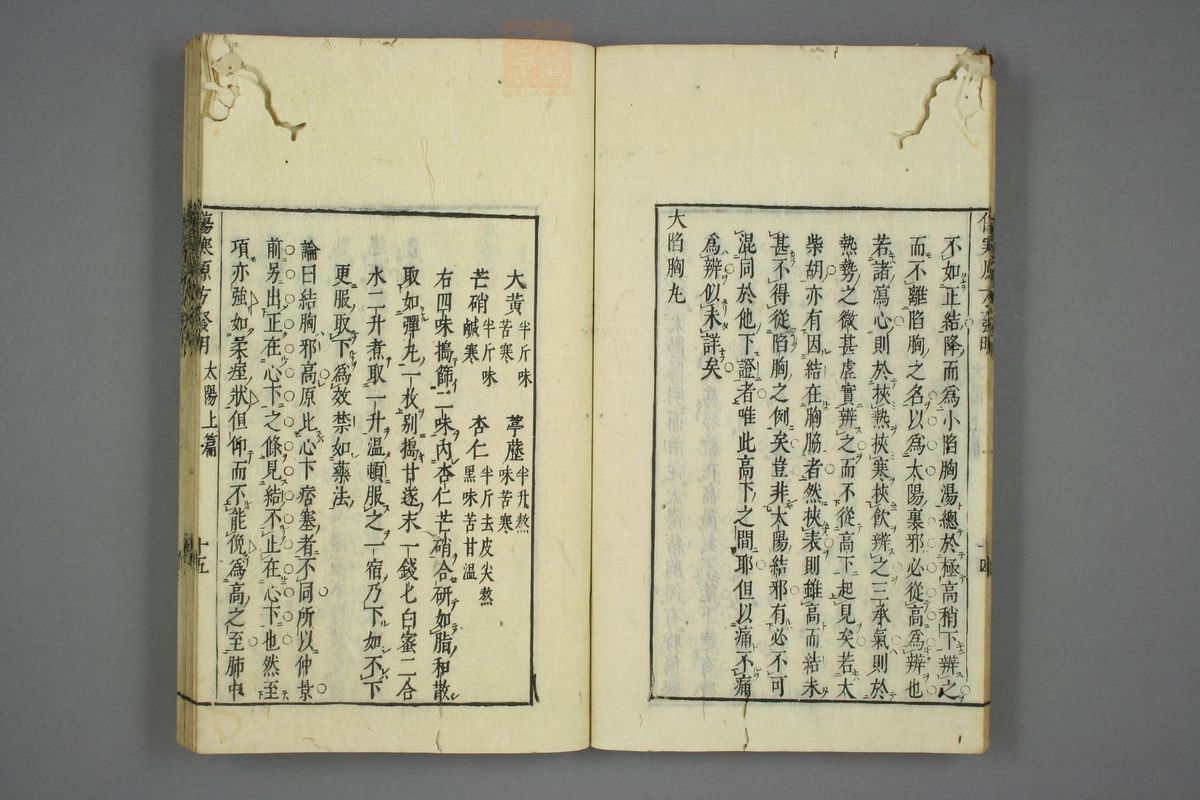 不如正結降而爲小陷胸湯總於極高稍下辨之
而不離陷胸之名以爲太陽裏邪必從高爲辨也
若諸瀉心則於挾熱挾寒挾飲辨之三承氣則於
熱勢之微甚虛實辨之而不從高下起見矣若大
柴胡亦有因結在胸脇者然挾表則雖高而結未
甚不得從陷胸之例矣豈非太陽結邪有必不可
混同於他下證者唯此高下之間耶但以痛不痛
爲辨似未詳矣
大陷胸丸
大黄 半斤味苦寒 葶藶 半升熬味苦寒
芒硝 半斤味鹹寒 杏仁 半斤去皮尖熬黑味苦甘温
右四味搗篩二味內杏仁芒硝合研如脂和散
取如彈丸一枚别搗甘遂末一錢匕白蜜二合
水二升煮取一升温頓服之一宿乃下如不下
更服取下爲效禁如藥法
論曰結胸邪高原比心下痞塞者不同所以仲景
前另出正在心下之條見結不止在心下也然至
項亦強如柔痙狀但仰而不能俛爲高之至肺中
傷寒原方發明 太陽上篇 十五